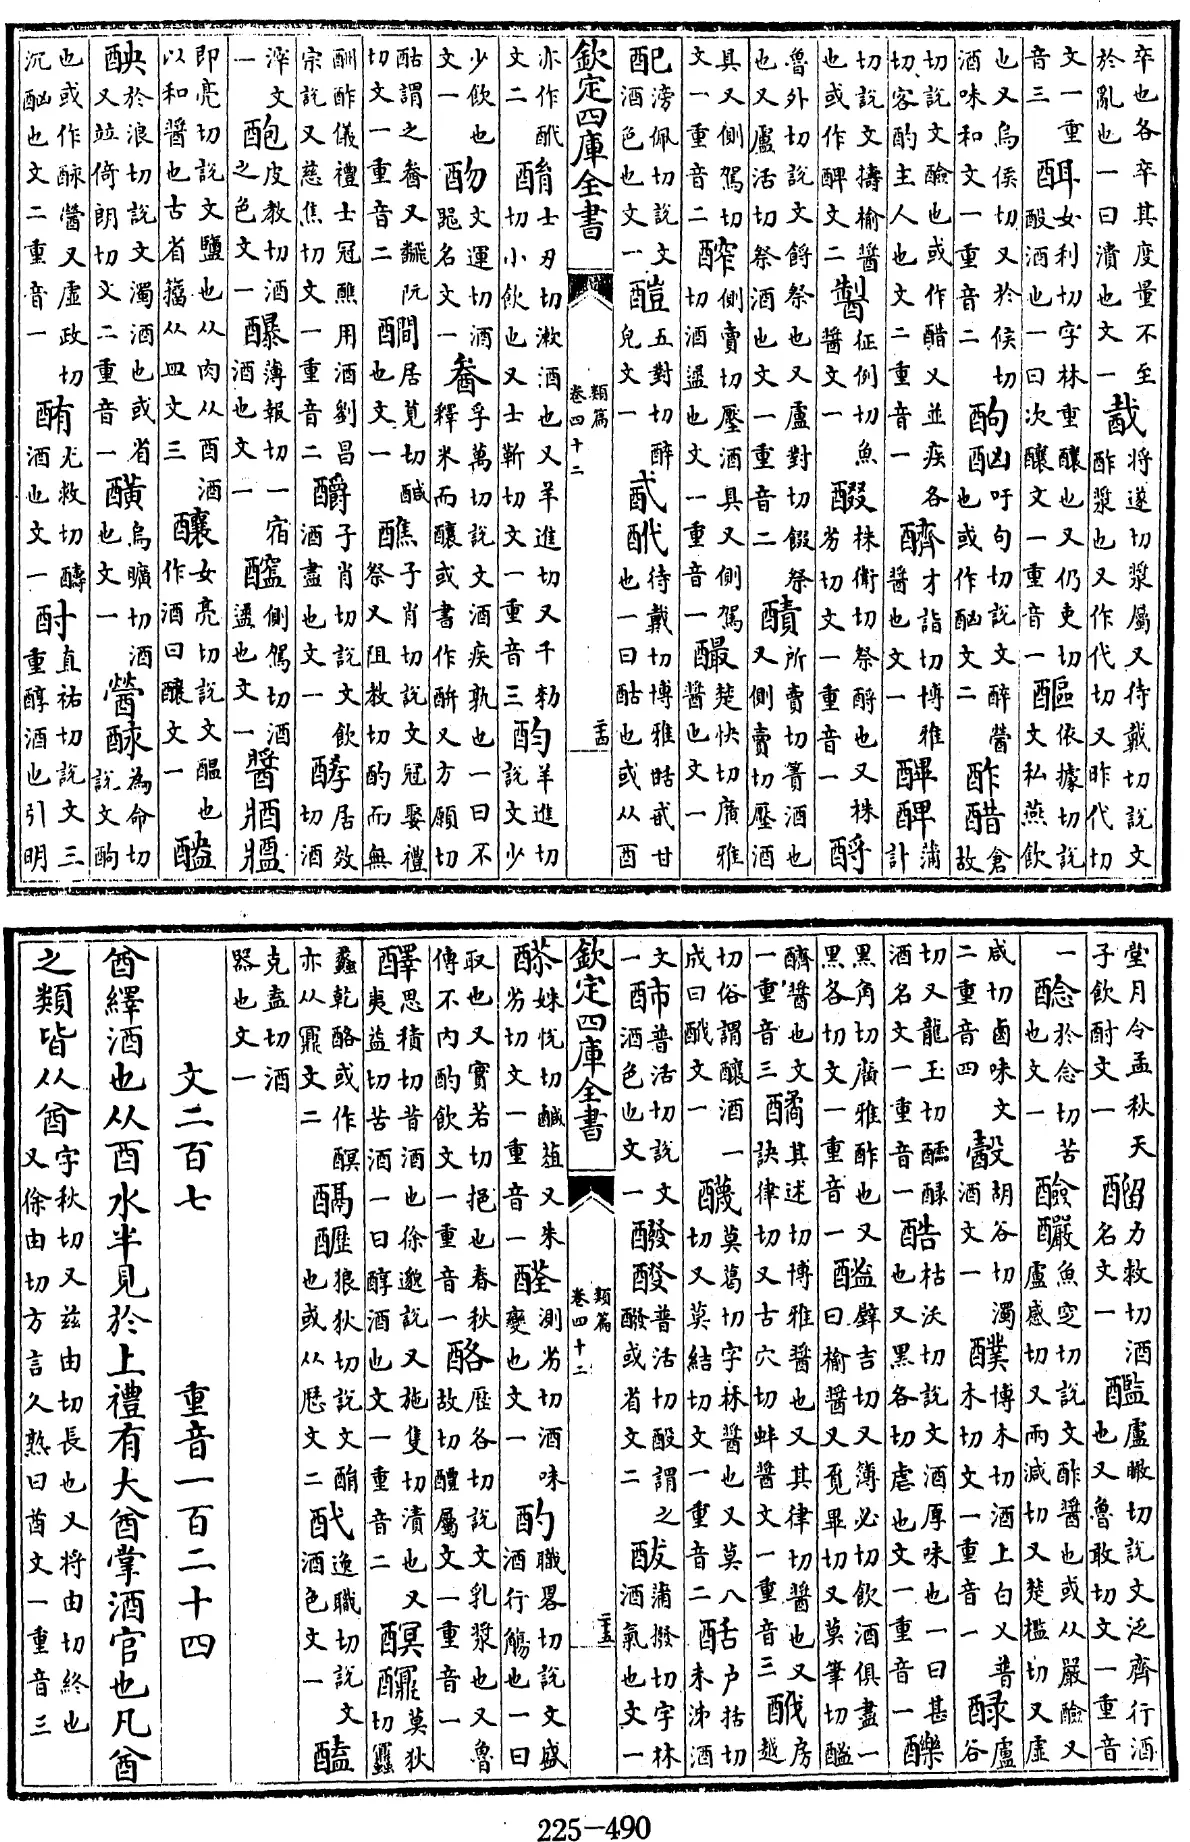 卒也各卒其度量不至於亂也一曰潰也文一 酨 將遂切漿屬又待戴切說文酢漿也又作代切又昨代切
文一重音三 女利切字林重釀也又仍吏切酘酒也一曰次釀文一重音一 醧 依據切說文私燕飲
也又烏侯切又於候切酒味和文一重音二 酗 吁句切說文醉醟也或作酗文二 酢醋 倉故
切說文醶也或作醋又並疾各切客酌主人也文二重音一 才詣切博雅醬也文一 蒲計
切說文榆醬也或作文二 征例切魚醬文一 醊 株衛切祭酹也又株劣切文一重音一 酹
魯外切說文餟祭也又盧對切餟祭也又盧活切祭酒也文一重音二 所賣切篘酒也又側賣切壓酒
具又側駕切文一重音二 醡 側賣切壓酒具又側駕切酒也文一重音一 楚快切廣雅醬也文一
配 滂佩切說文酒色也文一 五對切醉皃文一 待戴切博雅甘也一曰酤也或从酉
欽定四庫全書 類篇 卷四十二 二十四
亦作文二 酳 士刃切漱酒也又羊進切又千切小飲也又士靳切文一重音三 羊進切說文少
少飲也文一 文運切酒名文一 孚萬切說文酒疾孰也一曰不釋米而釀或書作又方願切
酤謂之又阮切文一重音二 居莧切鹹也文一 醮 子肖切說文冠娶禮祭又阻教切酌而無
酬酢儀禮士冠醮用酒劉昌宗說又慈焦切文一重音二 釂 子肖切說文飲酒盡也文一 酵 居效切酒
滓文一 皮教切酒之色文一 薄報切一宿酒也文一 側駕切酒也文一 醬
即亮切說文鹽也从肉从酉酒以和醬也古省籀从皿文三 釀 女亮切說文醞也作酒曰釀文一 醠
於浪切說文濁酒也或省又竝倚朗切文二重音一 烏曠切酒也文一 醟 為命切說文酗
也或作醬又虛政切沉酗也文二重音一 酭 尤救切醻酒也文一 酎 直祐切說文三重醇酒也引明
堂月令孟秋天子飲酎文一 力救切酒名文一 盧瞰切說文泛齊行酒也又魯敢切文一重音
一 於念切苦也文一 醶 魚窆切說文酢醬也或从嚴醶又盧感切又而減切又楚檻切又虛
咸切鹵味文二重音四 胡谷切濁酒文一 醭 博木切酒上白又普木切文一重音一 盧谷
切又龍玉切醽醁酒名文一重音一 酷 枯沃切說文酒厚味也一曰甚也又黑各切虐也文一重音一
黑角切廣雅酢也又黑各切文一重音一 壁吉切又簿必切飲酒俱盡一曰榆醬又覓畢切又莫筆切
醬也文一重音三 其述切博雅醬也又其律切醬也又訣律切又古穴切蚌醬文一重音三 房越
切俗謂釀酒一成曰文一 莫葛切字林醬也又莫八切又莫結切文一重音二 户括切未沛酒
文一 普活切說文酒色也文一 醱 普活切酘謂之醱或省文二 蒲撥切字林酒氣也文一
欽定四庫全書 類篇 卷四十二 二十五
姝悅切鹹葅又朱劣切文一重音一 測劣切酒味變也文一 酌 職畧切說文盛酒行觴也一曰
取也又實若切挹也春秋傳不内酌飲文一重音一 酪 歷各切說文乳漿也又魯故切醴屬文一重音一
醳 思積切昔酒也徐邈說又施隻切漬也又夷益切苦酒一曰醇酒也文一重音二 莫狄切
乾酪或作亦从文二 狼狄切說文酳也或从歷文二 逸職切說文酒色文一 醘
克盍切酒器也文一
文二百七 重音一百二十四
酋繹酒也从酉水半見於上禮有大酋掌酒官也凡酋
之類皆从酋 字秋切又茲由切長也又將由切終也又徐由切方言久熟曰酋文一重音三
225—490